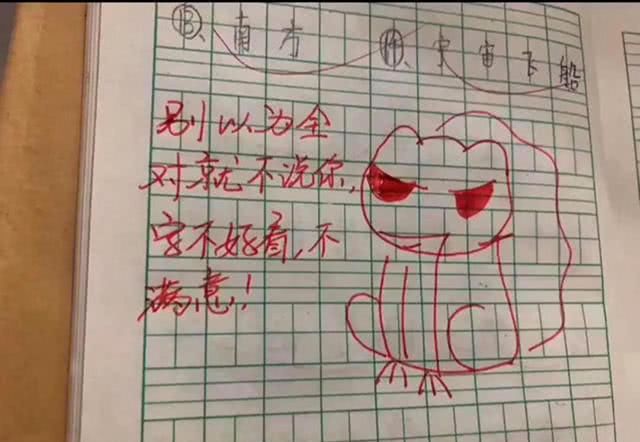 ⑬、南方 ⑭、宇宙飞船
别以为全
对就不说你，
字不好看，不
满意！